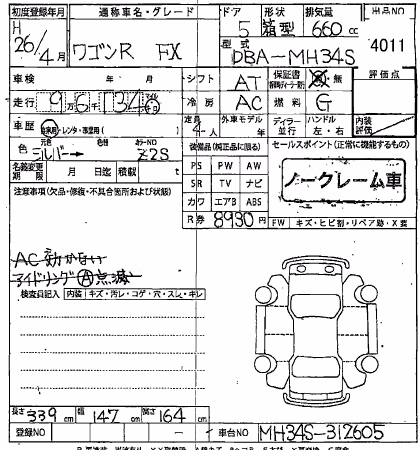 初度登録年月 通称車名・グレード ドア 形状 排気量 出品NO
H 26/4月 ワゴンR FX 5 箱型 660cc 4011
型式 DBA-MH34S
車検 年 月 シフト AT 保証書 無 評価点
走行 9万6千734 冷房 AC 燃料 G
車歴 自家用・レンタ・事業用 定員 4人 外車モデル ディーラー 並行 ハンドル 左・右 内装評価
色 元色 シルバー 色替 カラーNO Z2S 装備品(純正品に限る) セールスポイント(正常に機能するもの)
名義変更期限 月 日迄 積載 t PS PW AW ノークレーム車
注意事項(欠品・修復・不具合箇所および状態) SR TV ナビ
カワ エアB ABS
R券 8930円 FW キズ・ヒビ割・リペア跡・X要
AC効かない
アイドリングA点滅
検査員記入 内装 キズ・汚レ・コゲ・穴・スレ・キレ
長さ 339cm 幅 147cm 高さ 164cm
登録NO 車台NO MH34S-312605